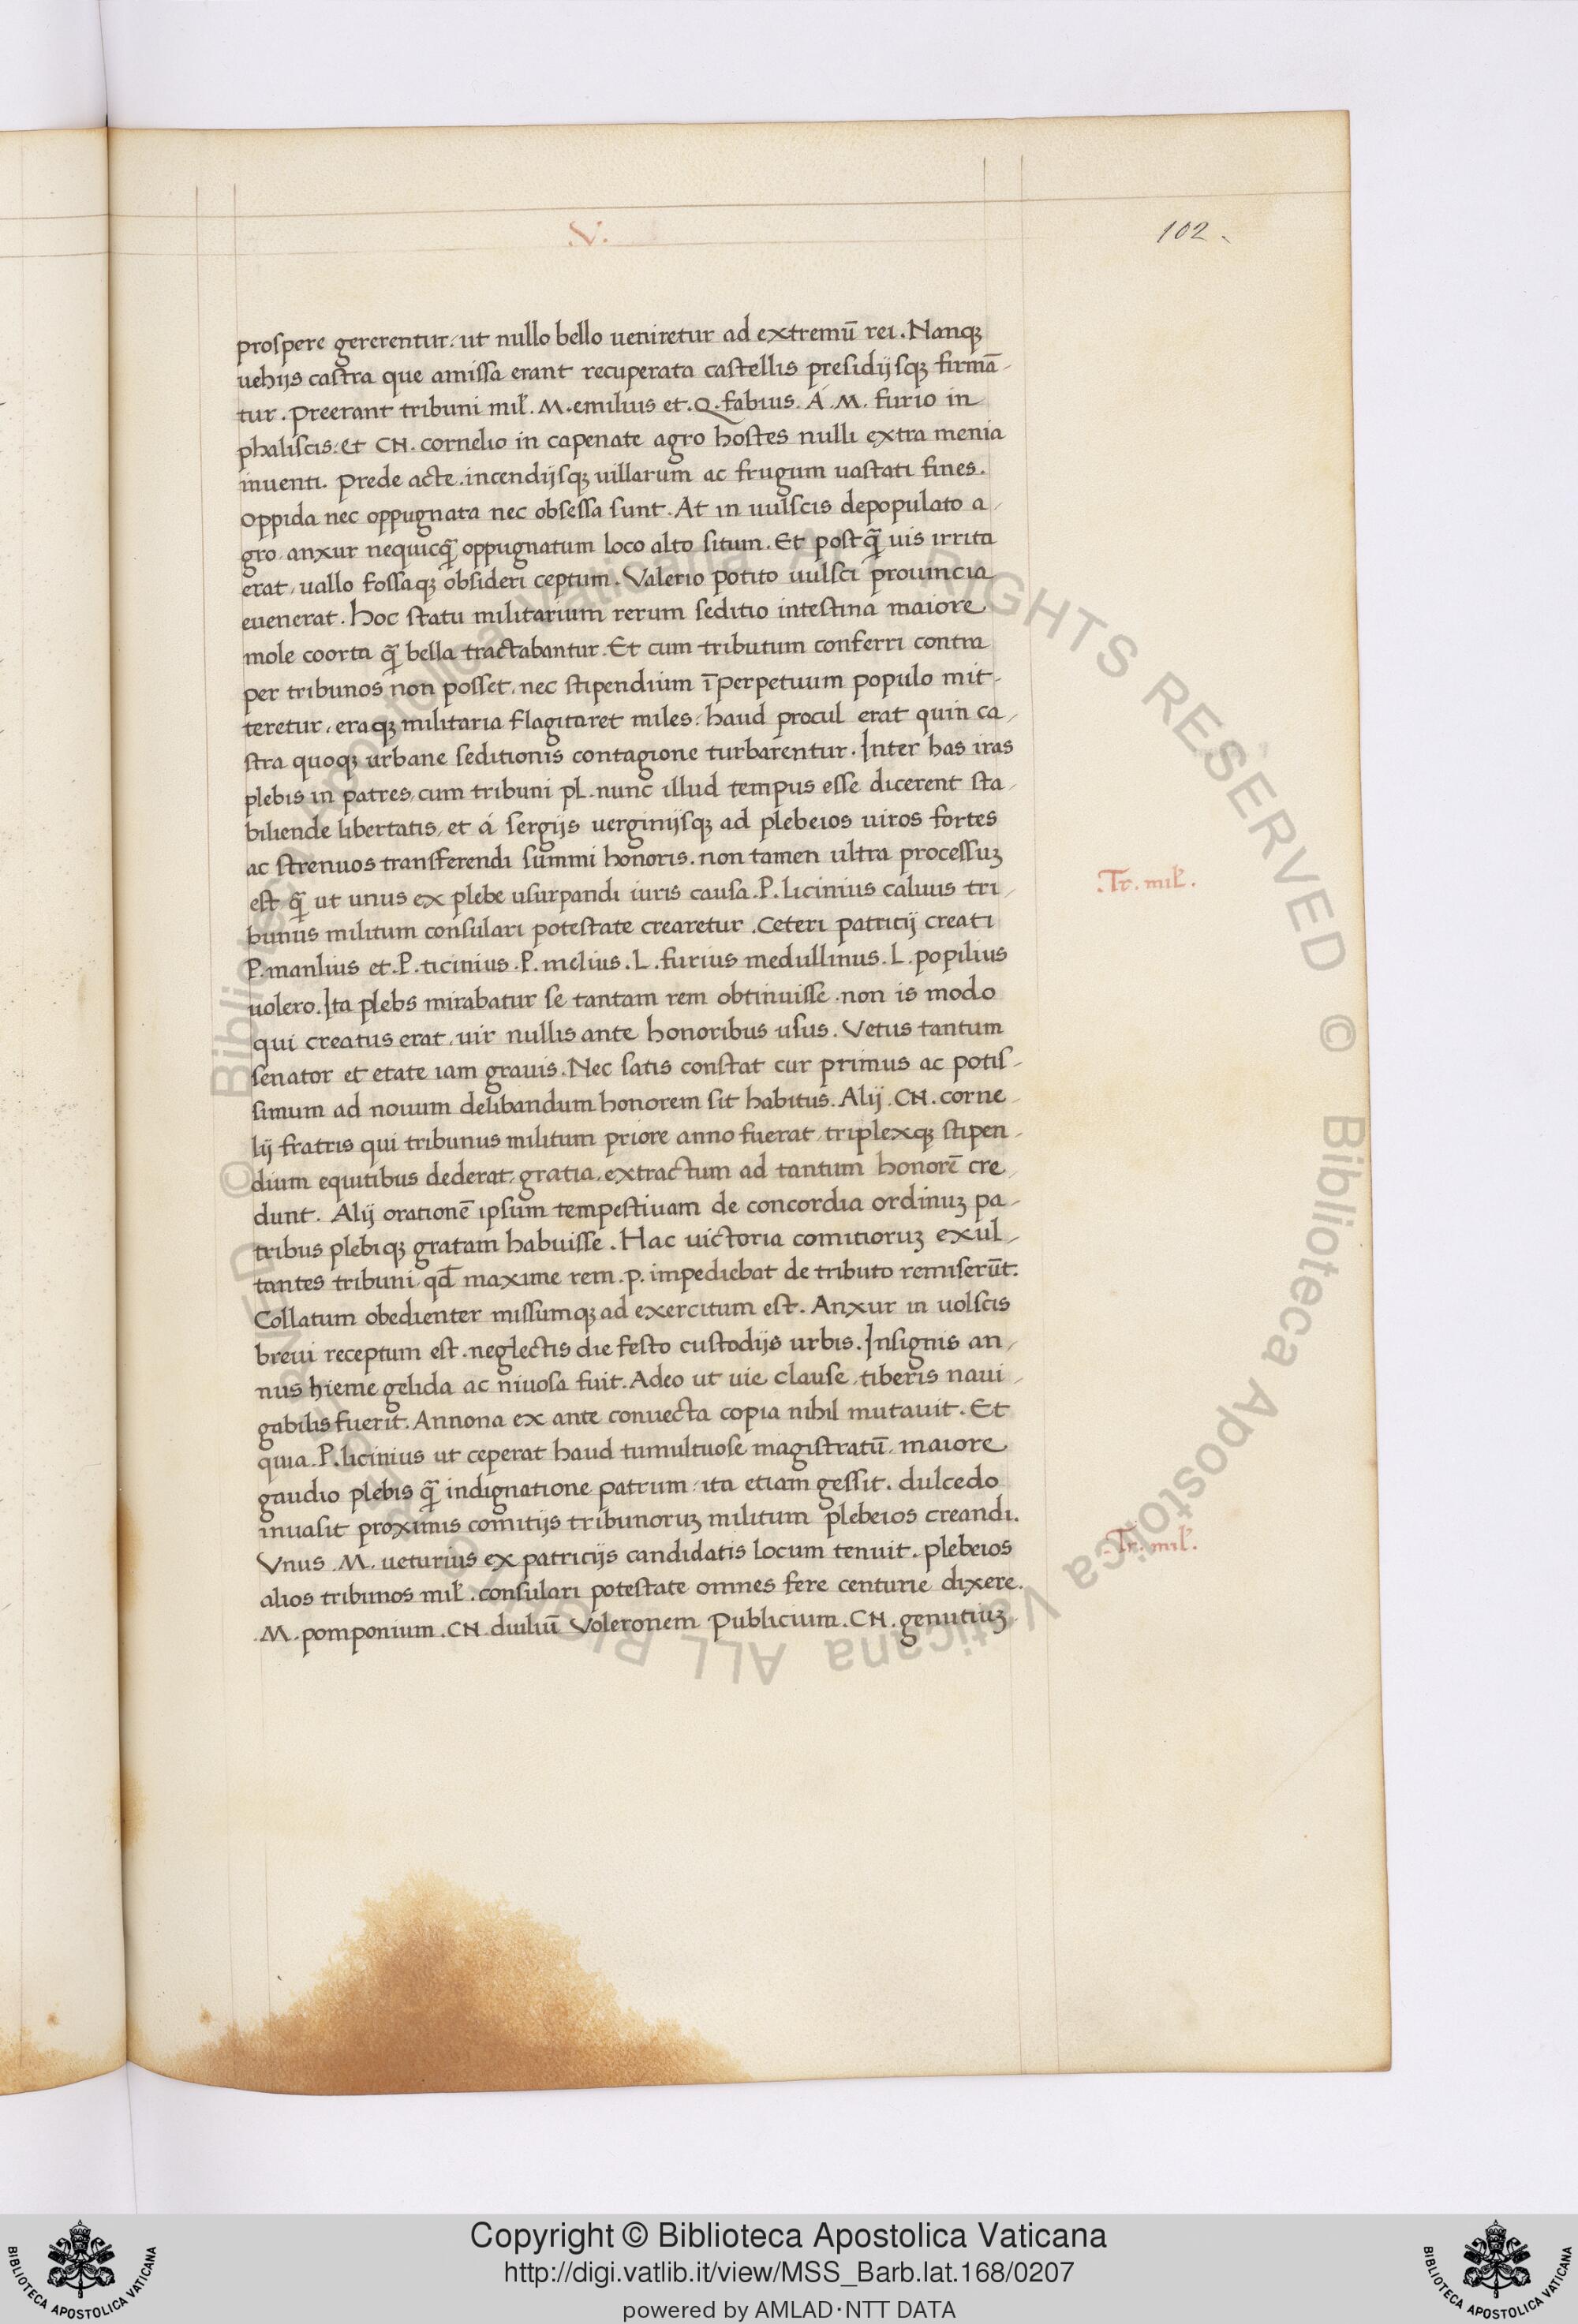 .V.
102.
prospere gererentur. ut nullo bello ueniretur ad extremū rei. Nanqꝫ
uehijs castra que amissa erant recuperata castellis presidijsqꝫ firmā-
tur. Preerant tribuni mil̃. M. emilius et. Q. fabius. Á. M. furio in
phaliscis. et CN. cornelio in capenate agro hostes nulli extra menia
inuenti. Prede acte. incendijsqꝫ uillarum ac frugum uastati fines.
Oppida nec oppugnata nec obsessa sunt. At in uulscis depopulato a-
gro. anxur nequicq̃ oppugnatum loco alto situm. Et postq̃ uis irrita
erat, uallo fossaqꝫ obsideri ceptum. Valerio potito uulsci prouincia
euenerat. Hoc statu militarium rerum seditio intestina maiore
mole coorta q̃ bella tractabantur. Et cum tributum conferri contra
per tribunos non posset, nec stipendium ī perpetuum populo mit-
teretur, eraqꝫ militaria flagitaret miles. haud procul erat quin ca-
stra quoqꝫ urbane seditionis contagione turbarentur. Inter has iras
plebis in patres, cum tribuni pl. nunc illud tempus esse dicerent sta-
biliende libertatis, et á sergijs uerginijsqꝫ ad plebeios uiros fortes
ac strenuos transferendi summi honoris. non tamen ultra processuꝫ
est q̃ ut unus ex plebe usurpandi iuris causa. P. licinius caluus tri-
bunus militum consulari potestate crearetur. Ceteri patricij creati
P. manlius et. P. ticinius. P. melius. L. furius medullinus. L. popilius
uolero. Ita plebs mirabatur se tantam rem obtinuisse. non is modo
qui creatus erat, uir nullis ante honoribus usus. Vetus tantum
senator et etate iam grauis. Nec satis constat cur primus ac potis-
simum ad nouum delibandum honorem sit habitus. Alij. CN. corne-
lij fratris qui tribunus militum priore anno fuerat, triplexqꝫ stipen-
dium equitibus dederat, gratia, extractum ad tantum honorē cre-
dunt. Alij orationē ipsum tempestiuam de concordia ordinuꝫ pa-
tribus plebiqꝫ gratam habuisse. Hac uictoria comitioruꝫ exul-
tantes tribuni qd̄ maxime rem. p. impediebat de tributo remiserūt.
Collatum obedienter missumqꝫ ad exercitum est. Anxur in uolscis
breui receptum est. neglectis die festo custodijs urbis. Insignis an-
nus hieme gelida ac niuosa fuit. Adeo ut uie clause, tiberis naui-
gabilis fuerit. Annona ex ante conuecta copia nihil mutauit. Et
quia. P. licinius ut ceperat haud tumultuose magistratū, maiore
gaudio plebis q̃ indignatione patrum, ita etiam gessit. dulcedo
inuasit proximis comitijs tribunoruꝫ militum plebeios creandi.
Vnus. M. ueturius ex patricijs candidatis locum tenuit. plebeios
alios tribunos mil̃. consulari potestate omnes fere centurie dixere.
.M. pomponium. CN. duiliū Voleronem Publicium. CN. genutiuꝫ
.Tr. mil̃.
.Tr. mil̃.
© Biblioteca Apostolica Vaticana ALL RIGHTS RESERVED © Biblioteca Apostolica Vaticana ALL RIGHTS RESERVED
Copyright © Biblioteca Apostolica Vaticana
http://digi.vatlib.it/view/MSS_Barb.lat.168/0207
powered by AMLAD·NTT DATA
BIBLIOTECA APOSTOLICA VATICANA
BIBLIOTECA APOSTOLICA VATICANA